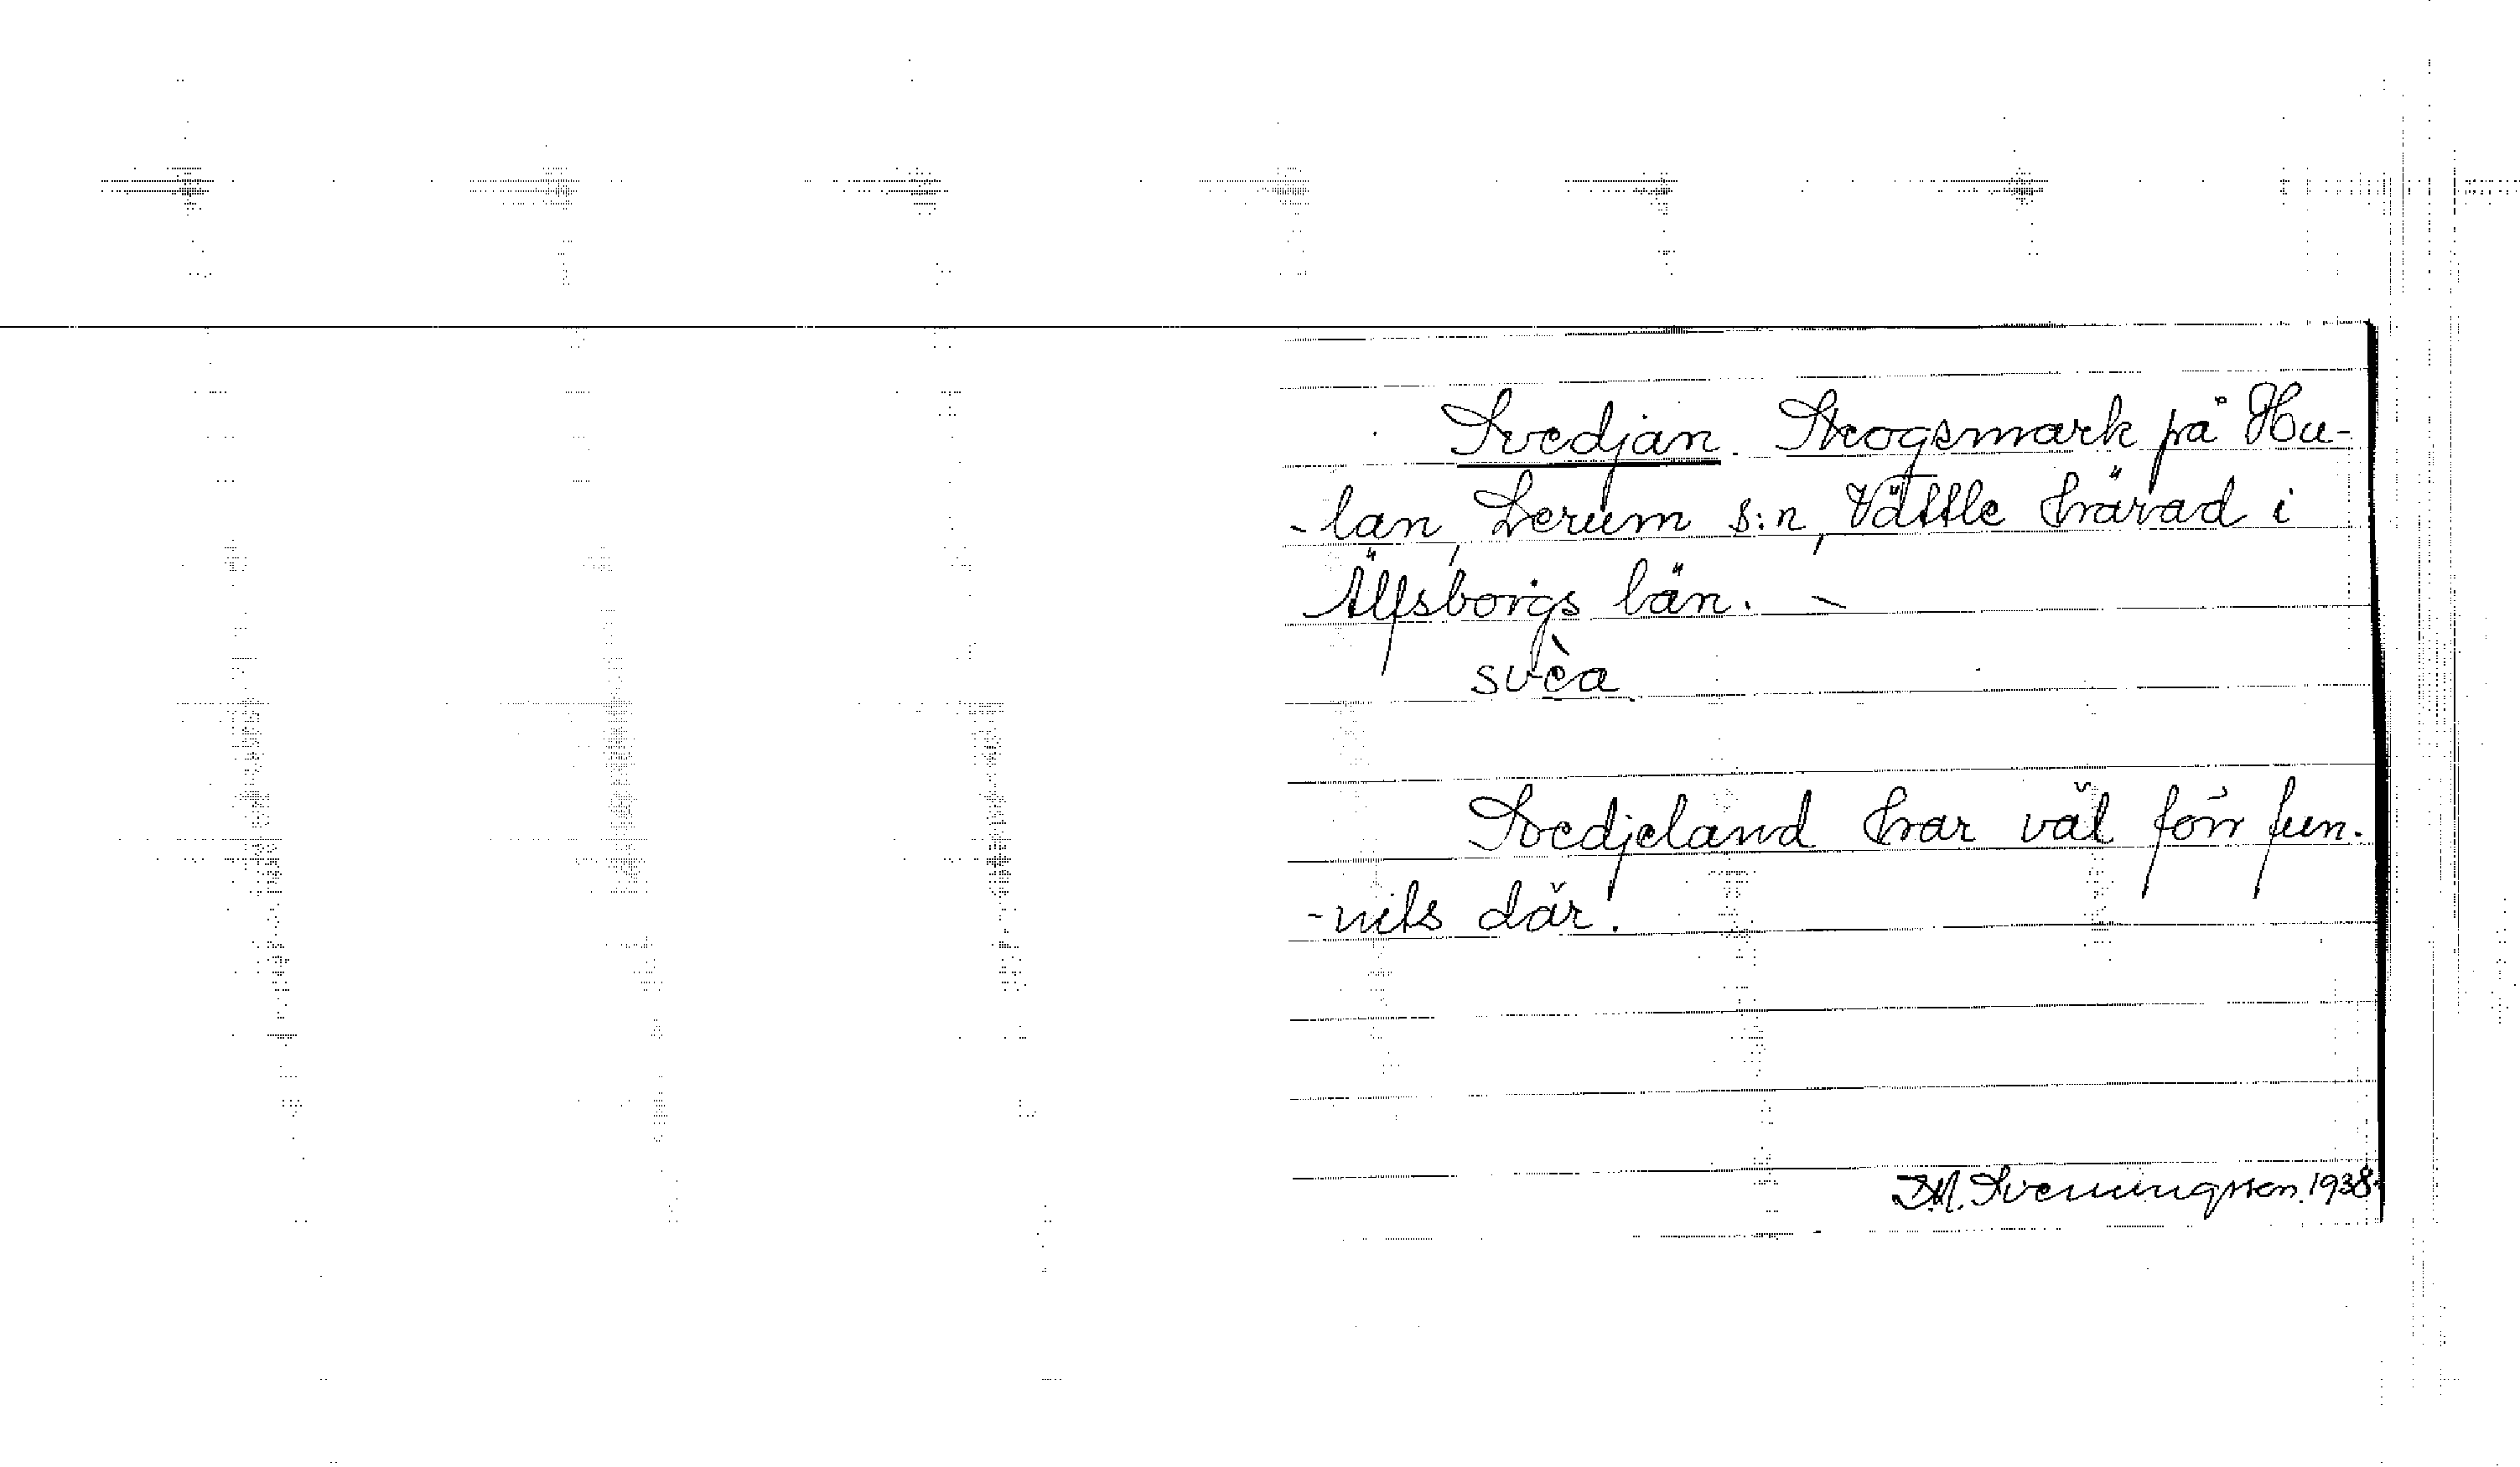 Svedjan. Skogsmark på Hu-
-lan, Lerum s:n, Vättle härad i
Älfsborgs län. –
svèa
Svedjeland har väl förr fun-
-nits där.
D.M. Svenningsson. 1938